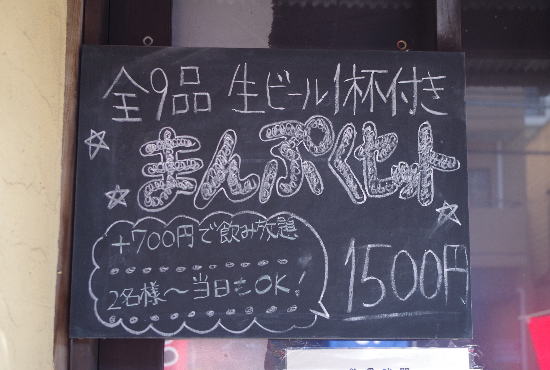 全9品 生ビール1杯付き
まんぷくセット
+700円で飲み放題
2名様〜当日もOK!
1500円